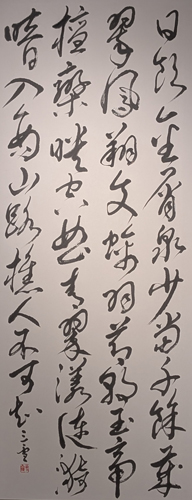 日飲金屑泉少當千餘歲
翠鳳翔文螭羽節朝玉帝
檀欒映空曲青翠漾漣漪
暗入商山路樵人不可知